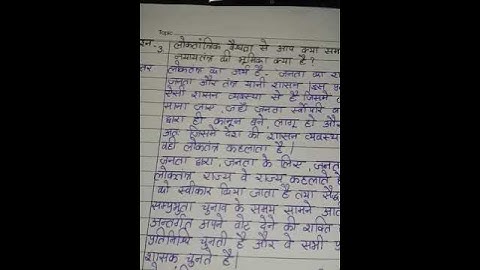 प्रश्न-3. लोकतांत्रिक वैधता से आप क्या सम
न्यायतंत्र की भूमिका क्या है?
लोकतंत्र का अर्थ है - जनता का
जनता और तंत्र यानी शासन
ऐसी शासन व्यवस्था से है जिसमें
माना जाए, जहाँ जनता सर्वोपरि
द्वारा ही कानून बने लागू हो और
अतः जिसमें देश की शासन व्यवस्था
वही लोकतंत्र कहलाता है।
जनता द्वारा, जनता के लिए, जनता
लोकतंत्र राज्य वे राज्य कहलाते
को स्वीकार किया जाता है तथा
सम्प्रभुता चुनाव के समय सामने
अन्तर्गत अपने वोट देने की शक्ति
प्रतिनिधि चुनती है और वे सभी
शासक चुनते हैं।